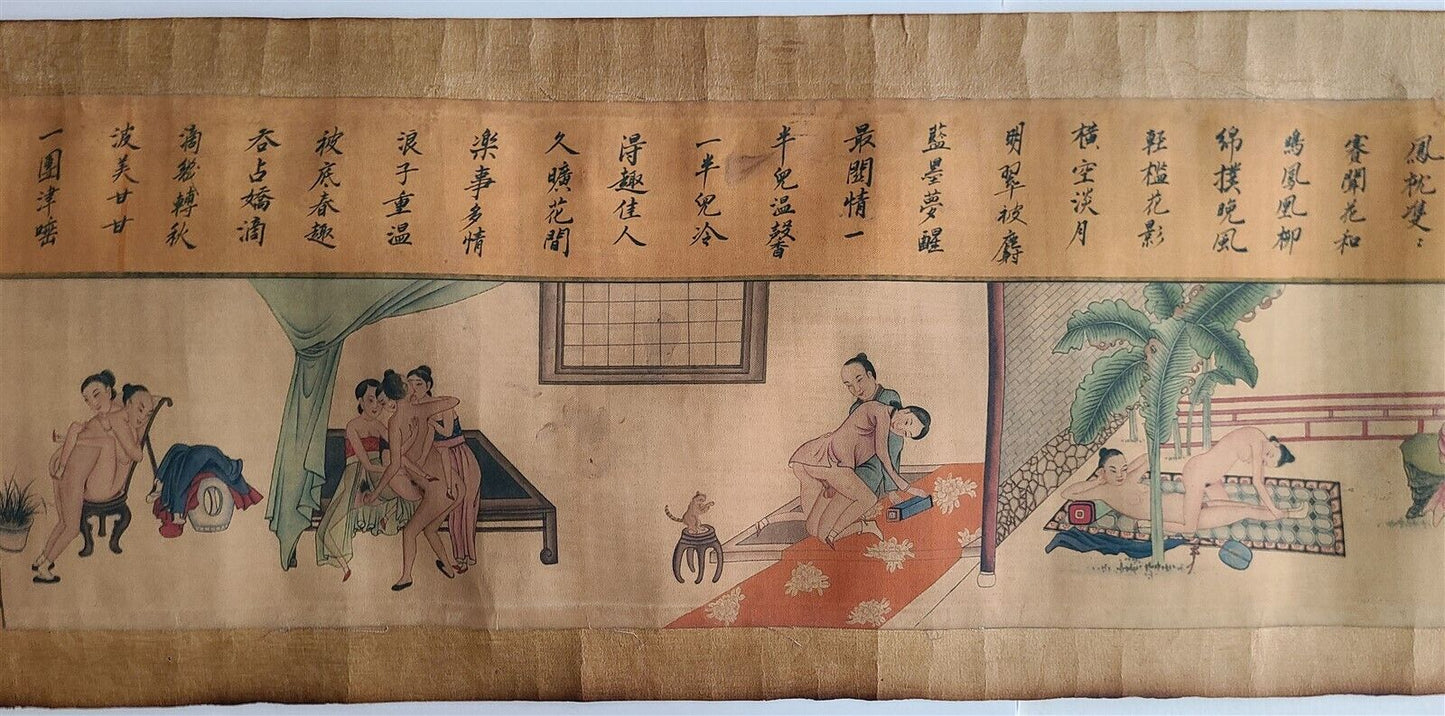 鳳枕雙〻
賽聞花和
鳴鳳凰柳
綿撲晚風
輕檻花影
橫空淡月
明翠被麝
藍墨夢醒
最關情一
半兒温馨
一半兒冷
淂趣佳人
久曠花間
楽事多情
浪子重温
被底春趣
吞占嬌滴
滴轉秋
波美甘甘
一團津唾